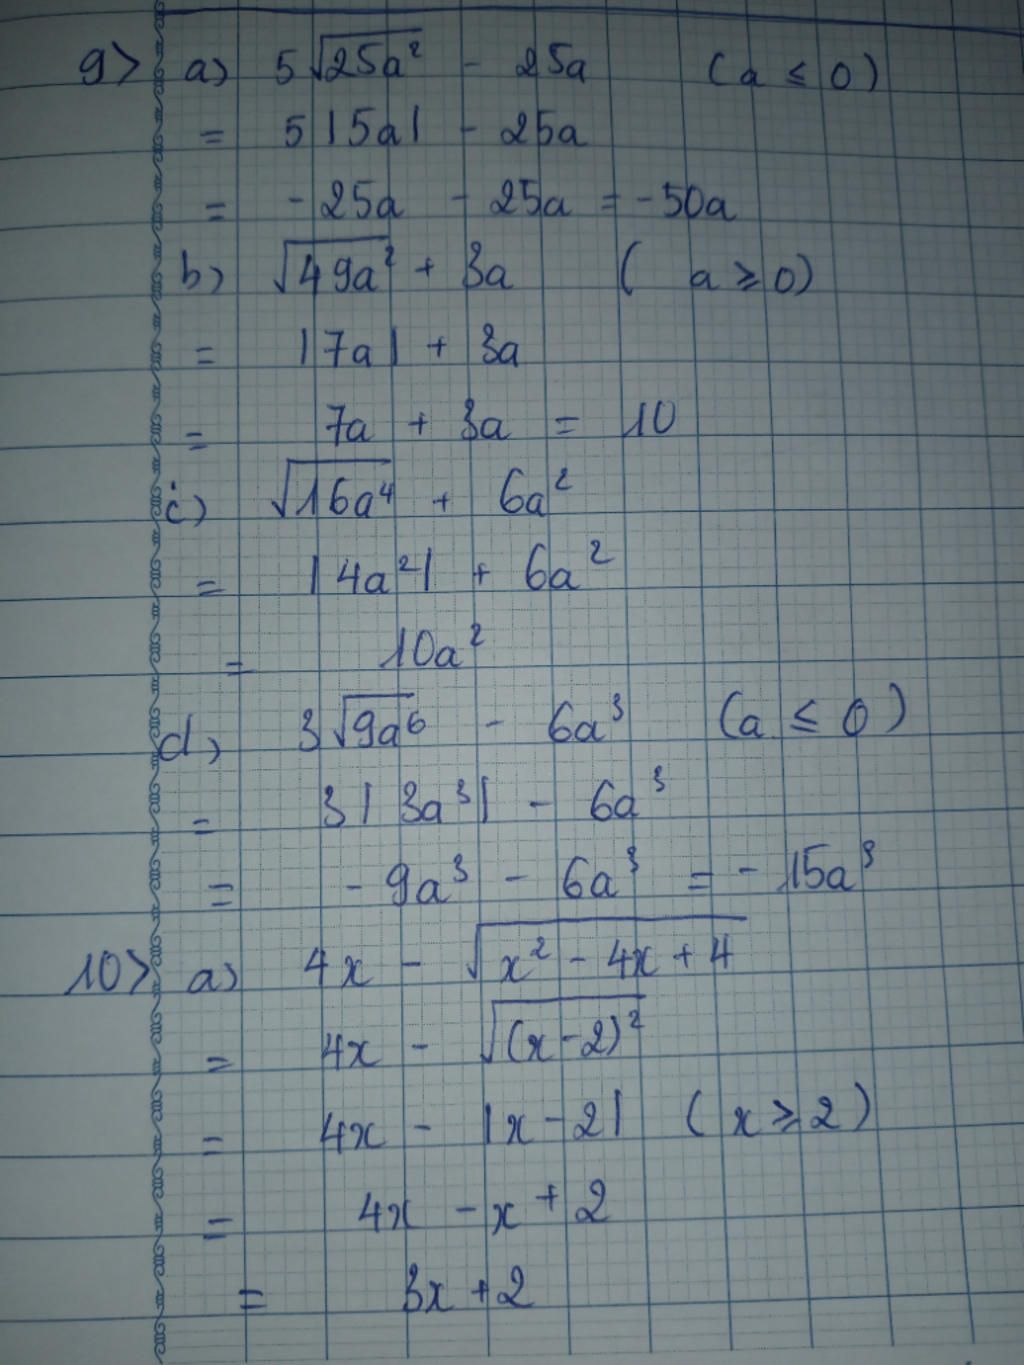 9> a) 5√25a² - 25a (a ≤ 0)
= 5|5a| - 25a
= - 25a - 25a = - 50a
b) √49a² + 3a ( a ≥ 0)
= |7a| + 3a
= 7a + 3a = 10
c) √16a⁴ + 6a²
= |4a²| + 6a²
= 10a²
d) 3√9a⁶ - 6a³ (a ≤ 0)
= 3|3a³| - 6a³
= - 9a³ - 6a³ = - 15a³
10> a) 4x - √x² - 4x + 4
= 4x - √(x-2)²
= 4x - |x-2| (x ≥ 2)
= 4x - x + 2
= 3x + 2